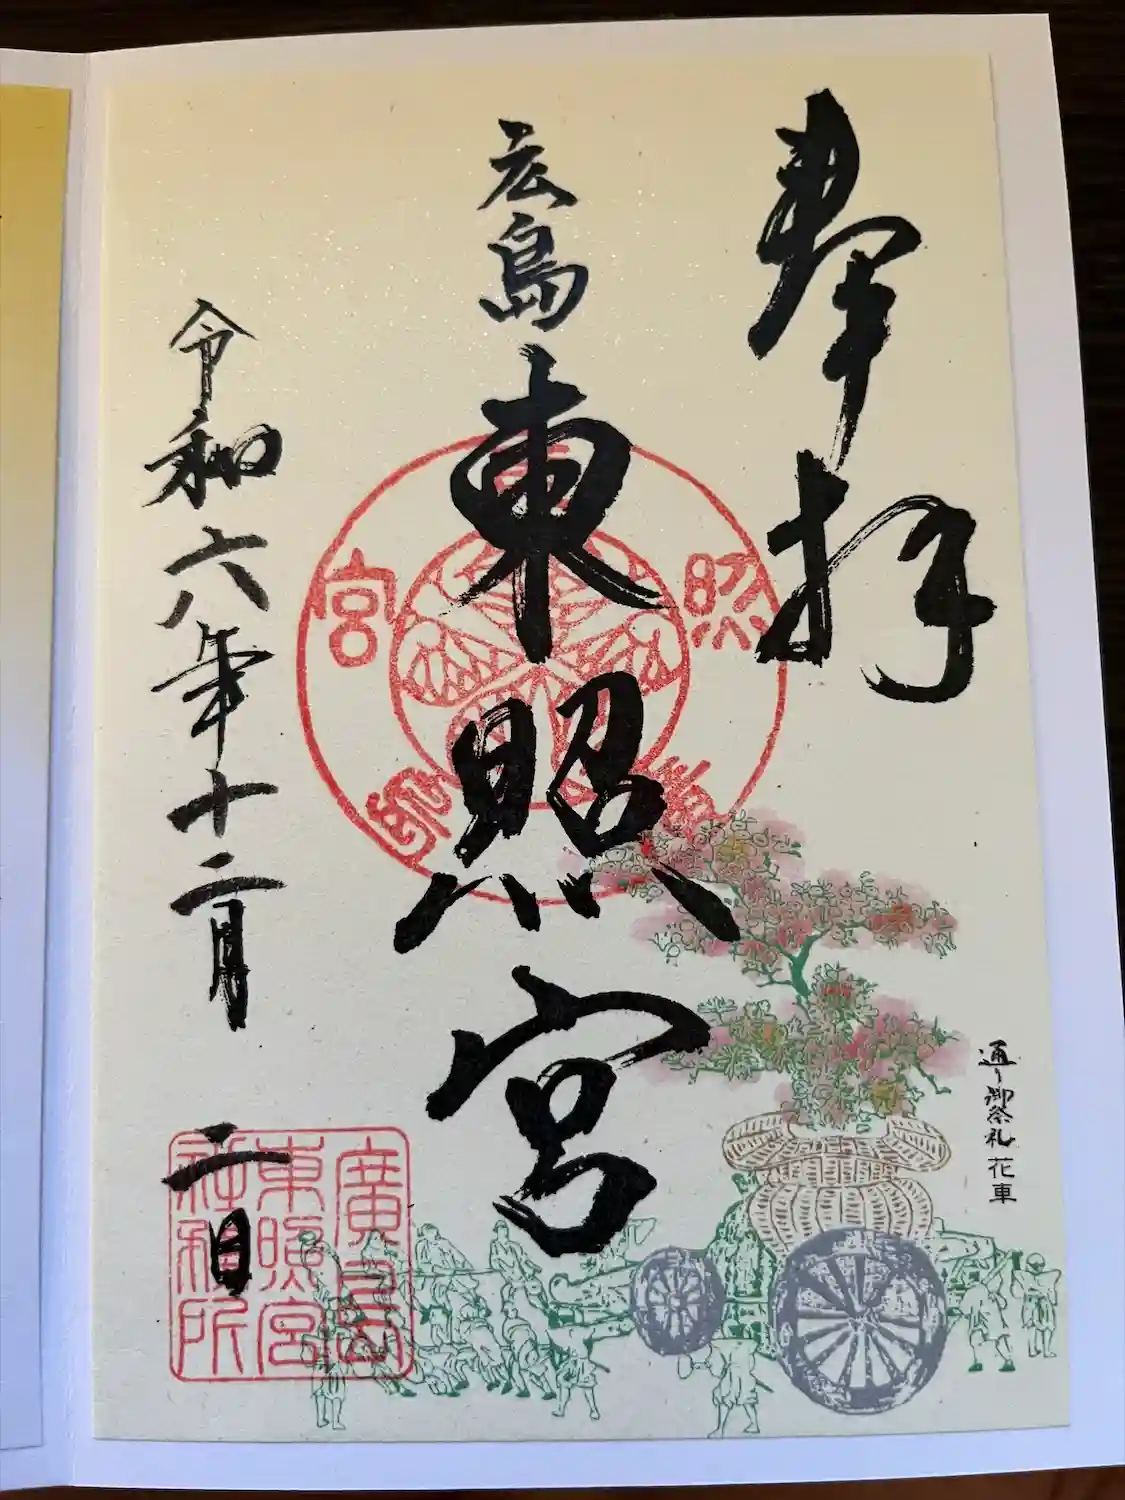 奉拝
広島 東照宮
令和六年十二月 二日
照
宮
廣島
東照宮
社務所
通り御祭礼 花車